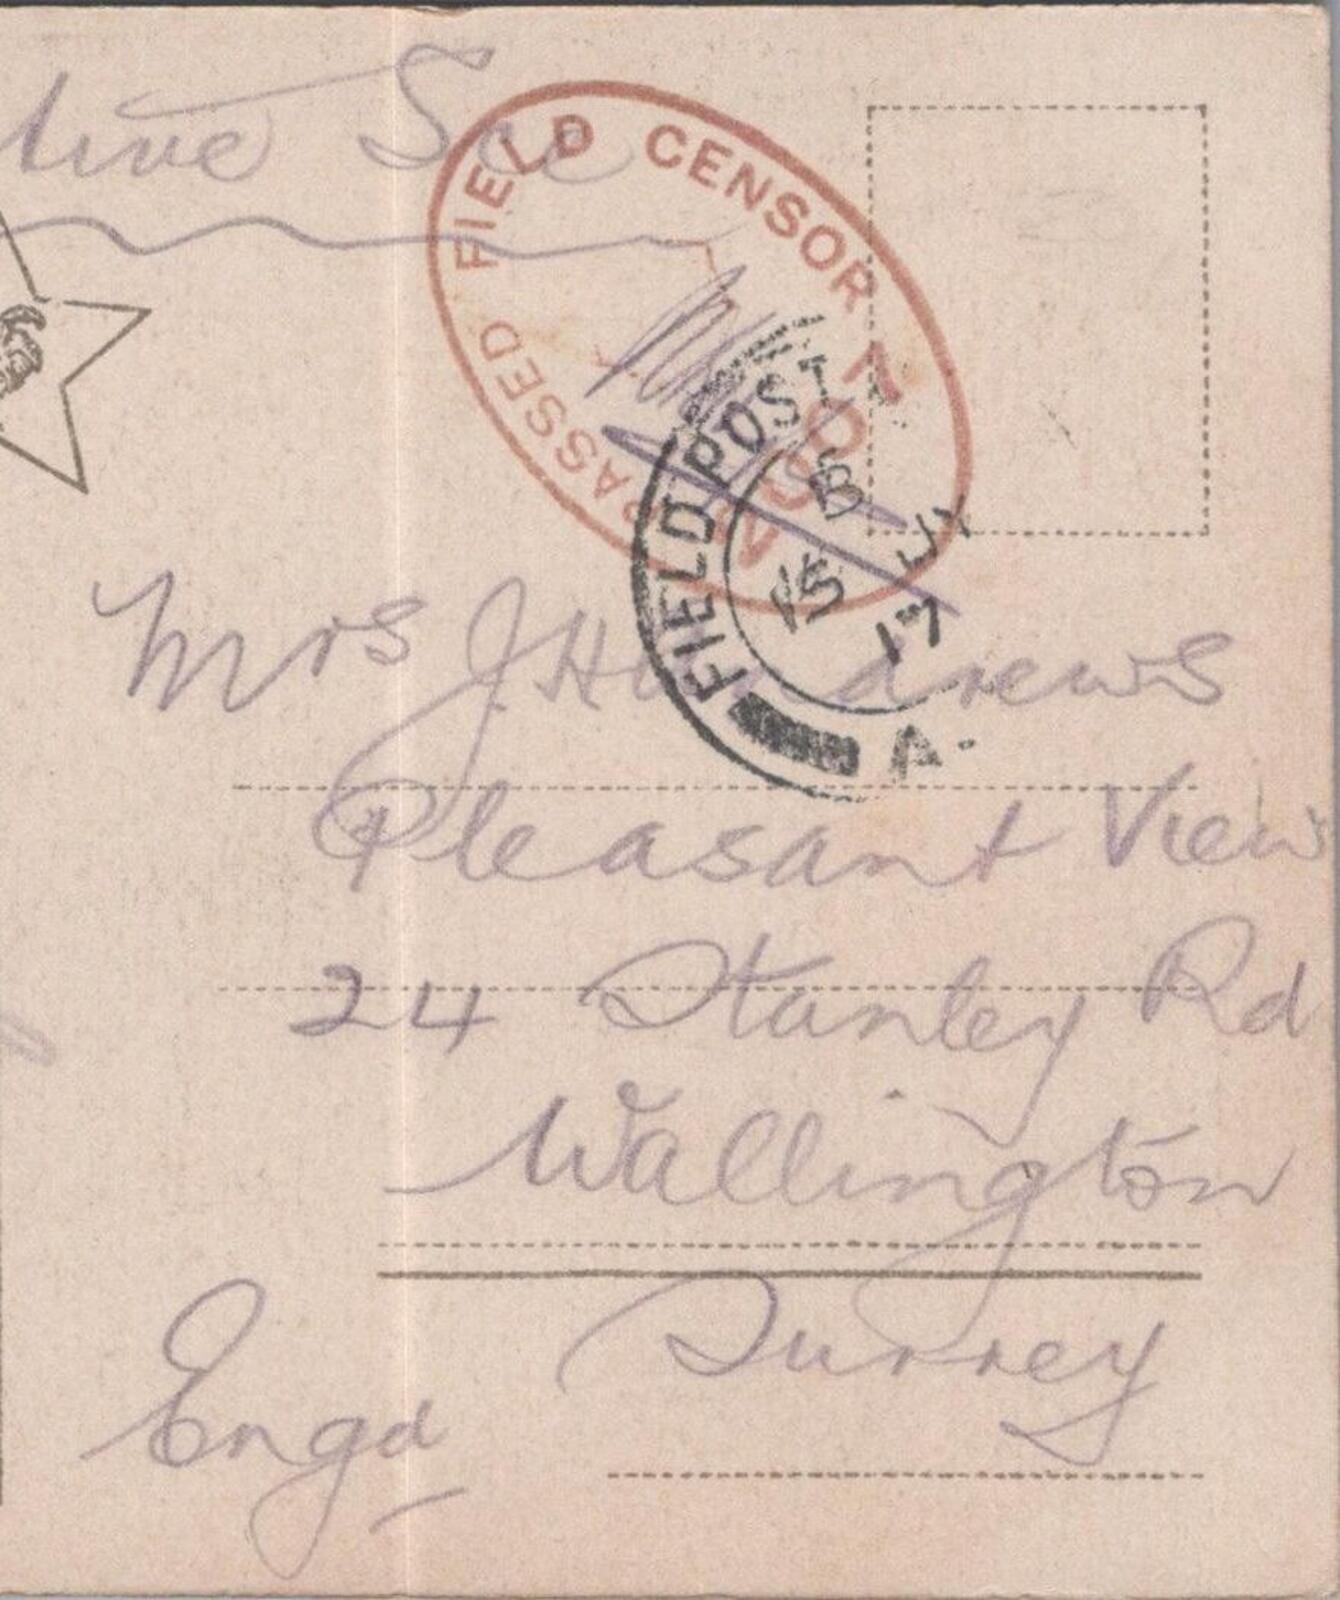 tive Sce
PASSED FIELD CENSOR
FIELD POST
B
15 JY
17
A.
Mrs J H Andrews
Pleasant View
24 Stanley Rd
Wallington
Surrey
Engd